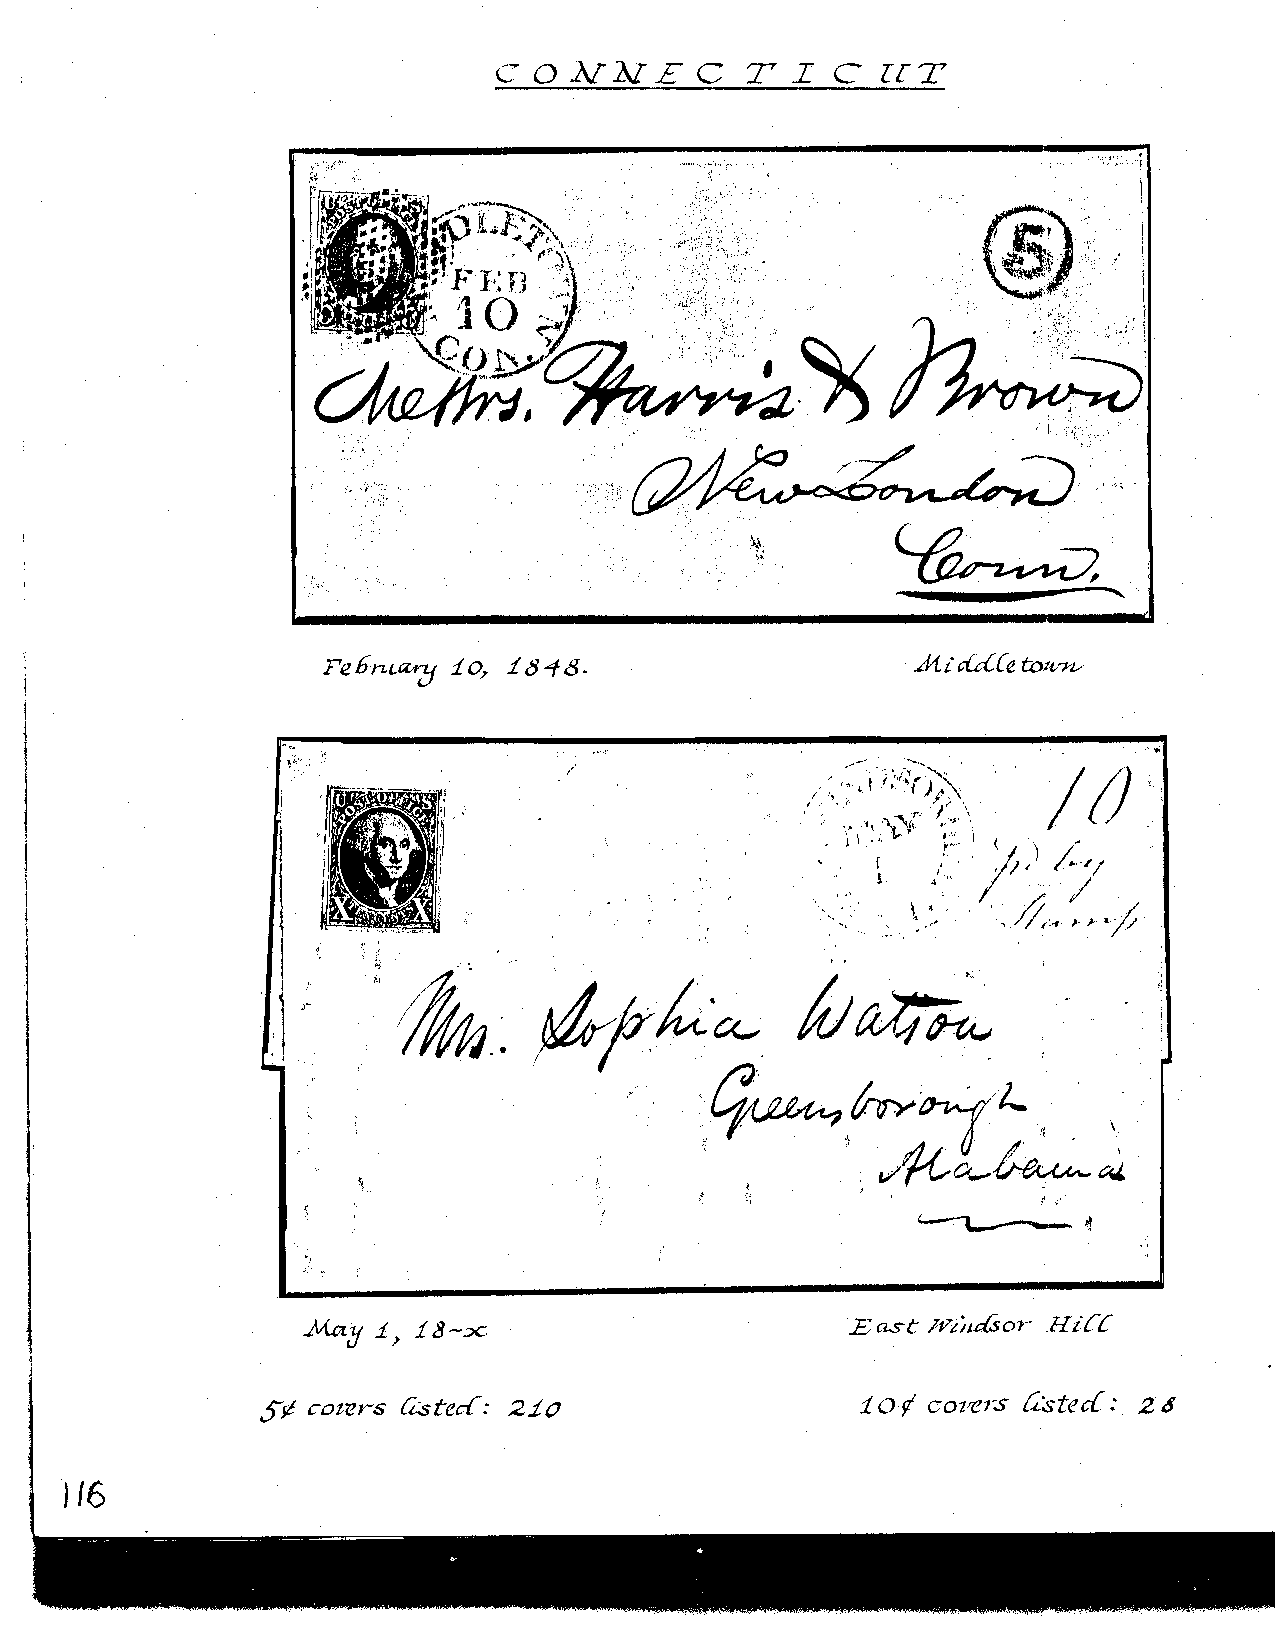 CONNECTICUT
FEB
10
CON.
5
Messrs. Harris & Brown
New London
Conn.
February 10, 1848.
Middletown
X X
MAY
1
10
pd by
Stamp
Mrs. Sophia Watson
Greensborough
Alabama
May 1, 18-x
East Windsor Hill
5¢ covers listed: 210
10¢ covers listed: 28
116